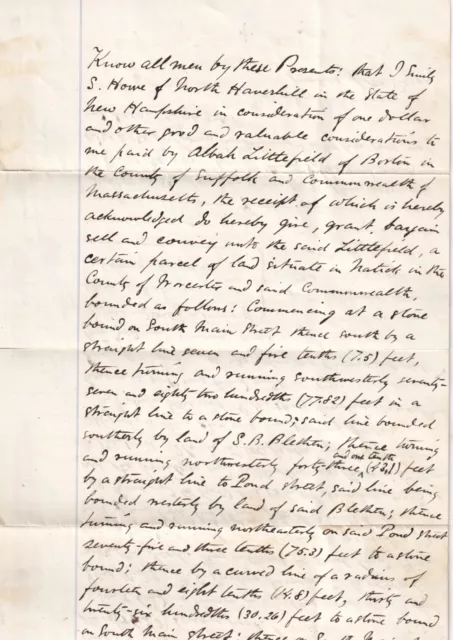 Know all men by these Presents: that I Emily
S. Howe of North Haverhill in the State of
New Hampshire in consideration of one dollar
and other good and valuable considerations to
me paid by Albah Littlefield of Boston in
the County of Suffolk and Commonwealth of
Massachusetts, the receipt of which is hereby
acknowledged do hereby give, grant, bargain
sell and convey unto the said Littlefield, a
certain parcel of land situate in Natick in the
County of Worcester and said Commonwealth,
bounded as follows: Commencing at a stone
bound on South Main Street thence south by a
straight line seven and five tenths (7.5) feet,
thence turning and running southwesterly seventy-
seven and eighty two hundredths (77.82) feet in a
straight line to a stone bound; said line bounded
southerly by land of S. B. Blethen; thence turning
and running northwesterly forty-three and one tenth (43.1) feet
by a straight line to Pond street, said line being
bounded westerly by land of said Blethen; thence
turning and running northeasterly on said Pond Street
seventy-five and three tenths (75.3) feet to a stone
bound; thence by a curved line of a radius of
fourteen and eight tenths (14.8) feet, thirty and
twenty-six hundredths (30.26) feet to a stone bound
on South Main street; thence on South Main